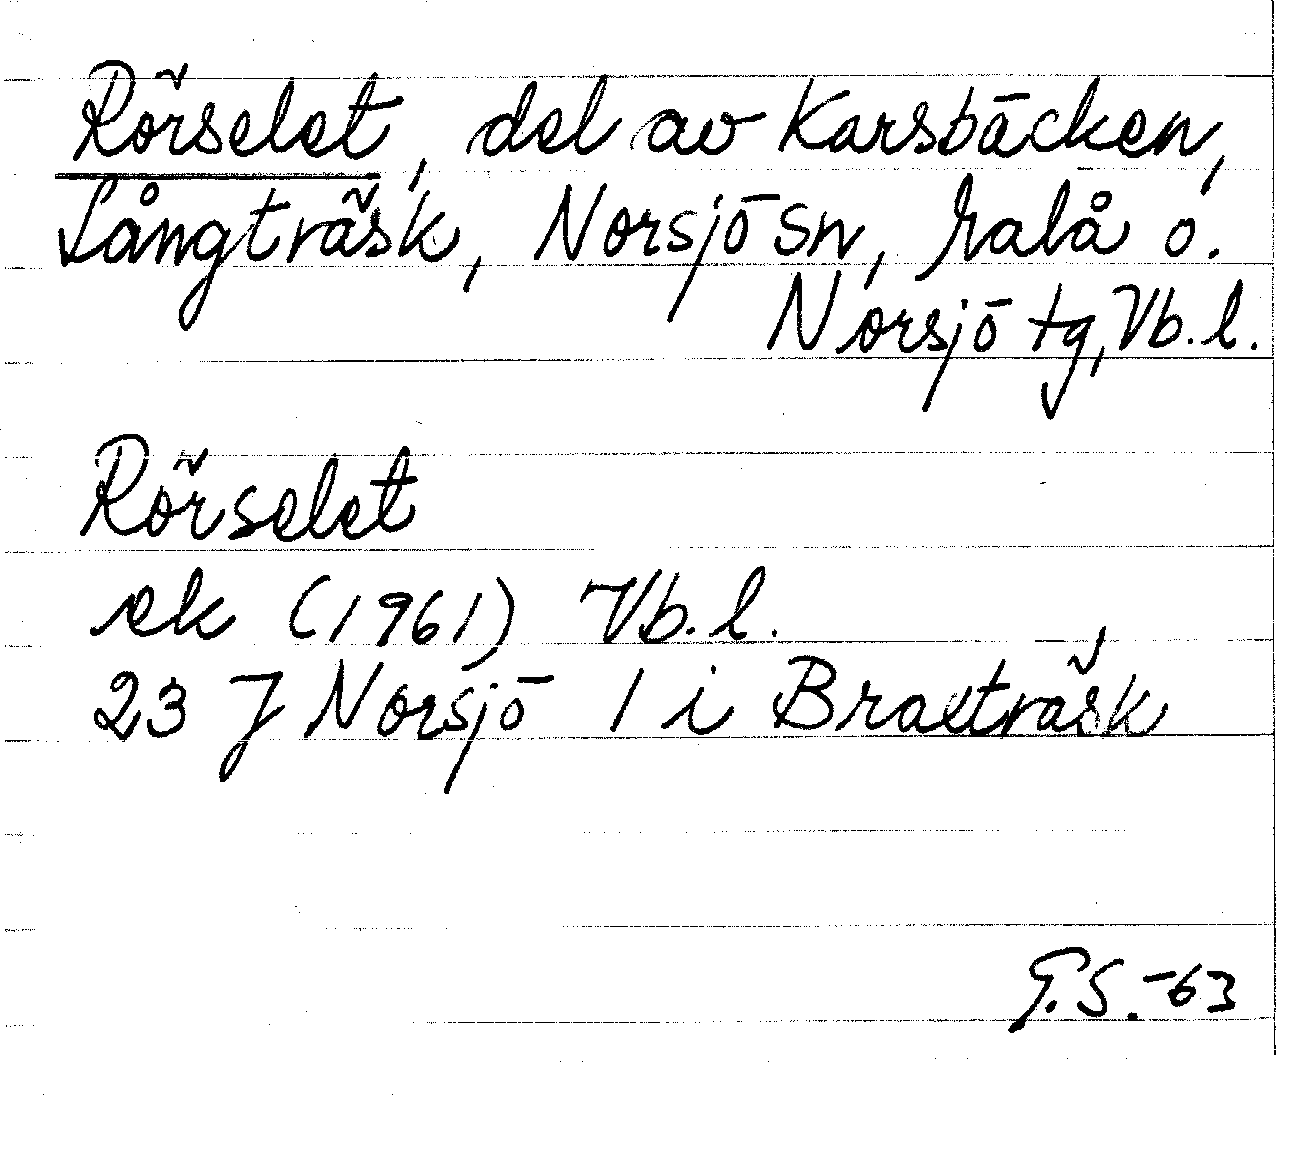 Rörselet, del av Karsbäcken,
Långträsk, Norsjö sn, Malå o.
Norsjö tg, Vb. l.
Rörselet
ek (1961) Vb. l.
23 J Norsjö 1 i Braxträsk
G.S.-63